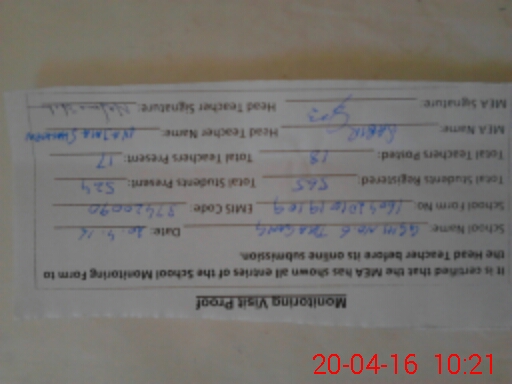 Monitoring Visit Proof
It is certified that the MEA has shown all entries of the School Monitoring Form to
the Head Teacher before its online submission.
School Name: No. 6 Date: 20.4.16
School Form No: EMIS Code: 37420090
Total Students Registered: 565 Total Students Present: 524
Total Teachers Posted: 18 Total Teachers Present: 17
MEA Name: SABIR Head Teacher Name: NAJMA SHAHEEN
MEA Signature: Head Teacher Signature:
20-04-16 10:21